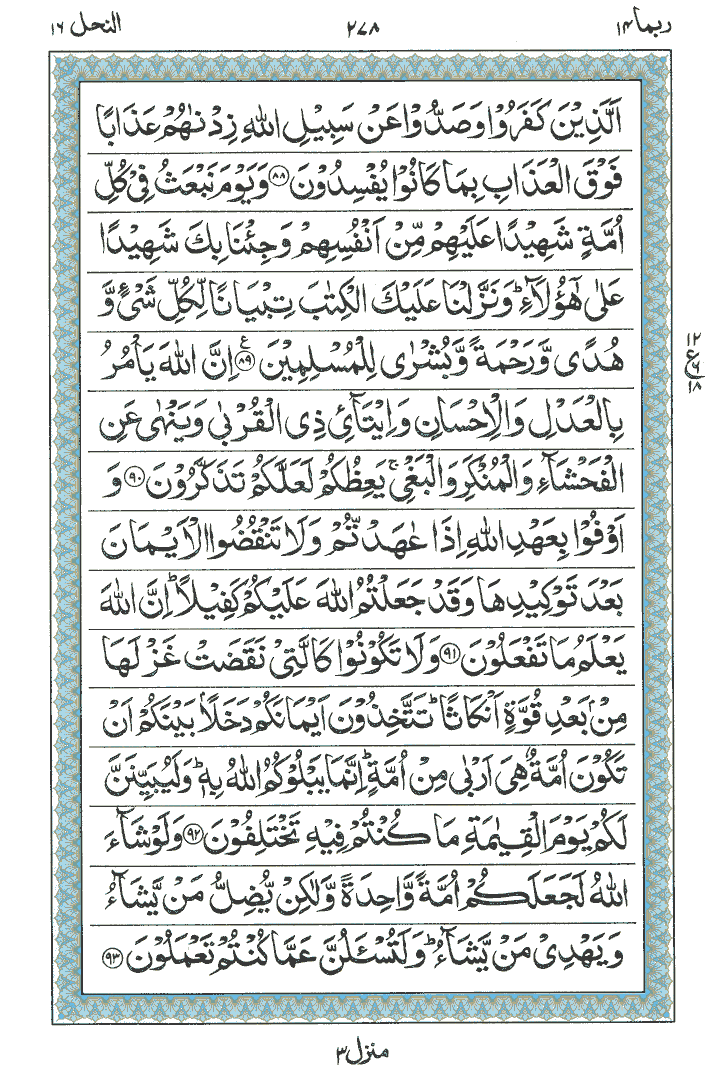 ربما ۱۴ ۲۷۸ النحل ۱۶
اَلَّذِيْنَ كَفَرُوْا وَصَدُّوْا عَنْ سَبِيْلِ اللّٰهِ زِدْنٰهُمْ عَذَابًا
فَوْقَ الْعَذَابِ بِمَا كَانُوْا يُفْسِدُوْنَ ۸۸ وَيَوْمَ نَبْعَثُ فِيْ كُلِّ
اُمَّةٍ شَهِيْدًا عَلَيْهِمْ مِّنْ اَنْفُسِهِمْ وَجِئْنَا بِكَ شَهِيْدًا
عَلٰى هٰٓؤُلَآءِ ؕ وَنَزَّلْنَا عَلَيْكَ الْكِتٰبَ تِبْيَانًا لِّكُلِّ شَيْءٍ وَّ
هُدًى وَّرَحْمَةً وَّبُشْرٰى لِلْمُسْلِمِيْنَ ۸۹ ع اِنَّ اللّٰهَ يَاْمُرُ
۱۲ ع ۶ ۱۸
بِالْعَدْلِ وَالْاِحْسَانِ وَاِيْتَآئِ ذِي الْقُرْبٰى وَيَنْهٰى عَنِ
الْفَحْشَآءِ وَالْمُنْكَرِ وَالْبَغْيِ ۚ يَعِظُكُمْ لَعَلَّكُمْ تَذَكَّرُوْنَ ۹۰ وَ
اَوْفُوْا بِعَهْدِ اللّٰهِ اِذَا عٰهَدْتُّمْ وَلَا تَنْقُضُوا الْاَيْمَانَ
بَعْدَ تَوْكِيْدِهَا وَقَدْ جَعَلْتُمُ اللّٰهَ عَلَيْكُمْ كَفِيْلًا ؕ اِنَّ اللّٰهَ
يَعْلَمُ مَا تَفْعَلُوْنَ ۹۱ وَلَا تَكُوْنُوْا كَالَّتِيْ نَقَضَتْ غَزْلَهَا
مِنْۢ بَعْدِ قُوَّةٍ اَنْكَاثًا ؕ تَتَّخِذُوْنَ اَيْمَانَكُمْ دَخَلًاۢ بَيْنَكُمْ اَنْ
تَكُوْنَ اُمَّةٌ هِيَ اَرْبٰى مِنْ اُمَّةٍ ؕ اِنَّمَا يَبْلُوْكُمُ اللّٰهُ بِهٖ ؕ وَلَيُبَيِّنَنَّ
لَكُمْ يَوْمَ الْقِيٰمَةِ مَا كُنْتُمْ فِيْهِ تَخْتَلِفُوْنَ ۹۲ وَلَوْ شَآءَ
اللّٰهُ لَجَعَلَكُمْ اُمَّةً وَّاحِدَةً وَّلٰكِنْ يُّضِلُّ مَنْ يَّشَآءُ
وَيَهْدِيْ مَنْ يَّشَآءُ ؕ وَلَتُسْـَٔلُنَّ عَمَّا كُنْتُمْ تَعْمَلُوْنَ ۹۳
منزل ۳